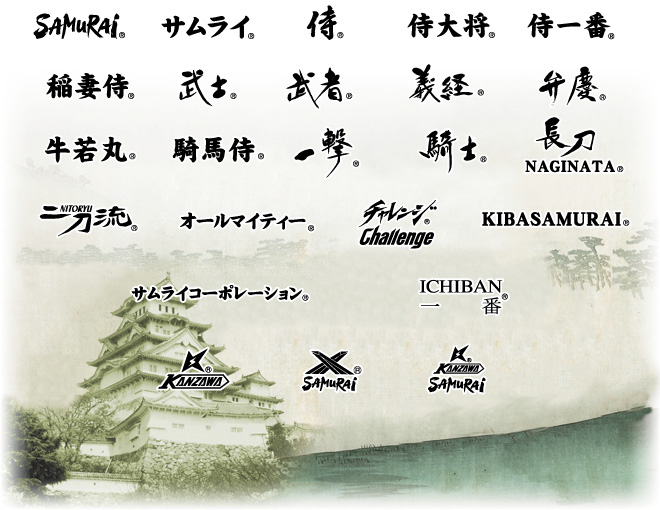 SAMURAI® サムライ® 侍® 侍大将® 侍一番®
稲妻侍® 武士® 武者® 義経® 弁慶®
牛若丸® 騎馬侍® 一撃® 騎士® 長刀
NAGINATA®
二刀流® NITORYU オールマイティー® チャレンジ® KIBASAMURAI®
Challenge
サムライコーポレーション® ICHIBAN®
一番
® KANZAWA ® SAMURAI ® KANZAWA
SAMURAI